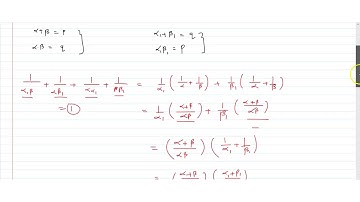 α+β = p α₁+β₁ = q
αβ = q αβ₁ = p
1/α₁β + 1/αβ₁ + 1/αα₁ + 1/ββ₁ = 1/α₁ (1/α + 1/β) + 1/β₁ (1/α + 1/β)
= ① = 1/α₁ (α+β/αβ) + 1/β₁ (α+β/αβ)
= (α+β/αβ) (1/α₁ + 1/β₁)